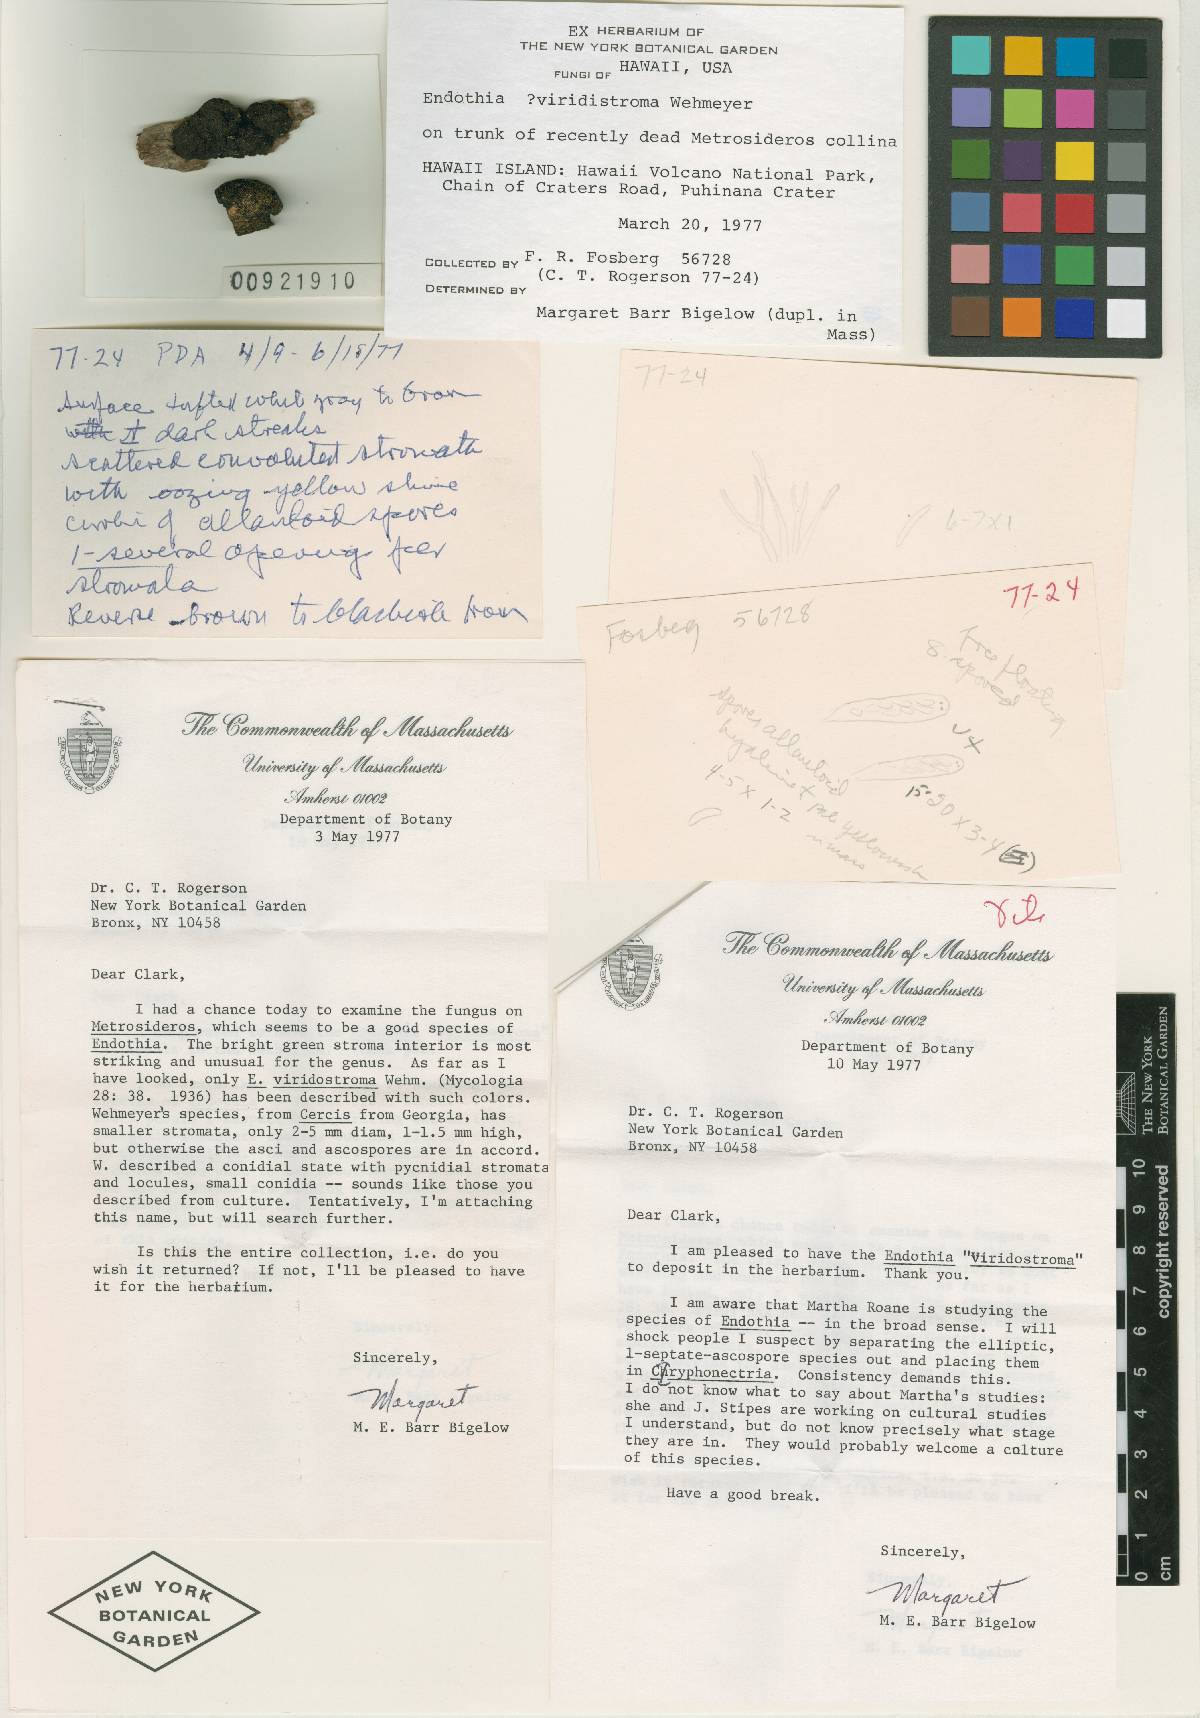 EX HERBARIUM OF
THE NEW YORK BOTANICAL GARDEN
FUNGI OF HAWAII, USA
Endothia ?viridistroma Wehmeyer
on trunk of recently dead Metrosideros collina
HAWAII ISLAND: Hawaii Volcano National Park,
Chain of Craters Road, Puhinana Crater
March 20, 1977
COLLECTED BY F. R. Fosberg 56728
(C. T. Rogerson 77-24)
DETERMINED BY
Margaret Barr Bigelow (dupl. in
Mass)
00921910
77-24 PDA 4/9 - 6/18/77
surface tufted gray to brown
dark streaks
scattered convoluted stromata
with oozing yellow slime
cirrhi of allantoid spores
1-several openings per
stromata
Reverse brown to blackish brown
77-24
6-7 x 1
77-24
Fosberg 56728
Free floating
8-spored
spores allantoid
hyaline + pale yellowish
in mass
4-5 x 1-2
15-20 x 3-4
The Commonwealth of Massachusetts
University of Massachusetts
Amherst 01002
Department of Botany
3 May 1977
Dr. C. T. Rogerson
New York Botanical Garden
Bronx, NY 10458
Dear Clark,
I had a chance today to examine the fungus on
Metrosideros, which seems to be a good species of
Endothia. The bright green stroma interior is most
striking and unusual for the genus. As far as I
have looked, only E. viridostroma Wehm. (Mycologia
28: 38. 1936) has been described with such colors.
Wehmeyer's species, from Cercis from Georgia, has
smaller stromata, only 2-5 mm diam, 1-1.5 mm high,
but otherwise the asci and ascospores are in accord.
W. described a conidial state with pycnidial stromata
and locules, small conidia -- sounds like those you
described from culture. Tentatively, I'm attaching
this name, but will search further.
Is this the entire collection, i.e. do you
wish it returned? If not, I'll be pleased to have
it for the herbarium.
Sincerely,
Margaret
M. E. Barr Bigelow
The Commonwealth of Massachusetts
University of Massachusetts
Amherst 01002
Department of Botany
10 May 1977
Dr. C. T. Rogerson
New York Botanical Garden
Bronx, NY 10458
Dear Clark,
I am pleased to have the Endothia "Viridostroma"
to deposit in the herbarium. Thank you.
I am aware that Martha Roane is studying the
species of Endothia -- in the broad sense. I will
shock people I suspect by separating the elliptic,
1-septate-ascospore species out and placing them
in Cryphonectria. Consistency demands this.
I do not know what to say about Martha's studies:
she and J. Stipes are working on cultural studies
I understand, but do not know precisely what stage
they are in. They would probably welcome a culture
of this species.
Have a good break.
Sincerely,
Margaret
M. E. Barr Bigelow
NEW YORK
BOTANICAL
GARDEN
THE NEW YORK
BOTANICAL GARDEN
copyright reserved
0 1 2 3 4 5 6 7 8 9 10
cm